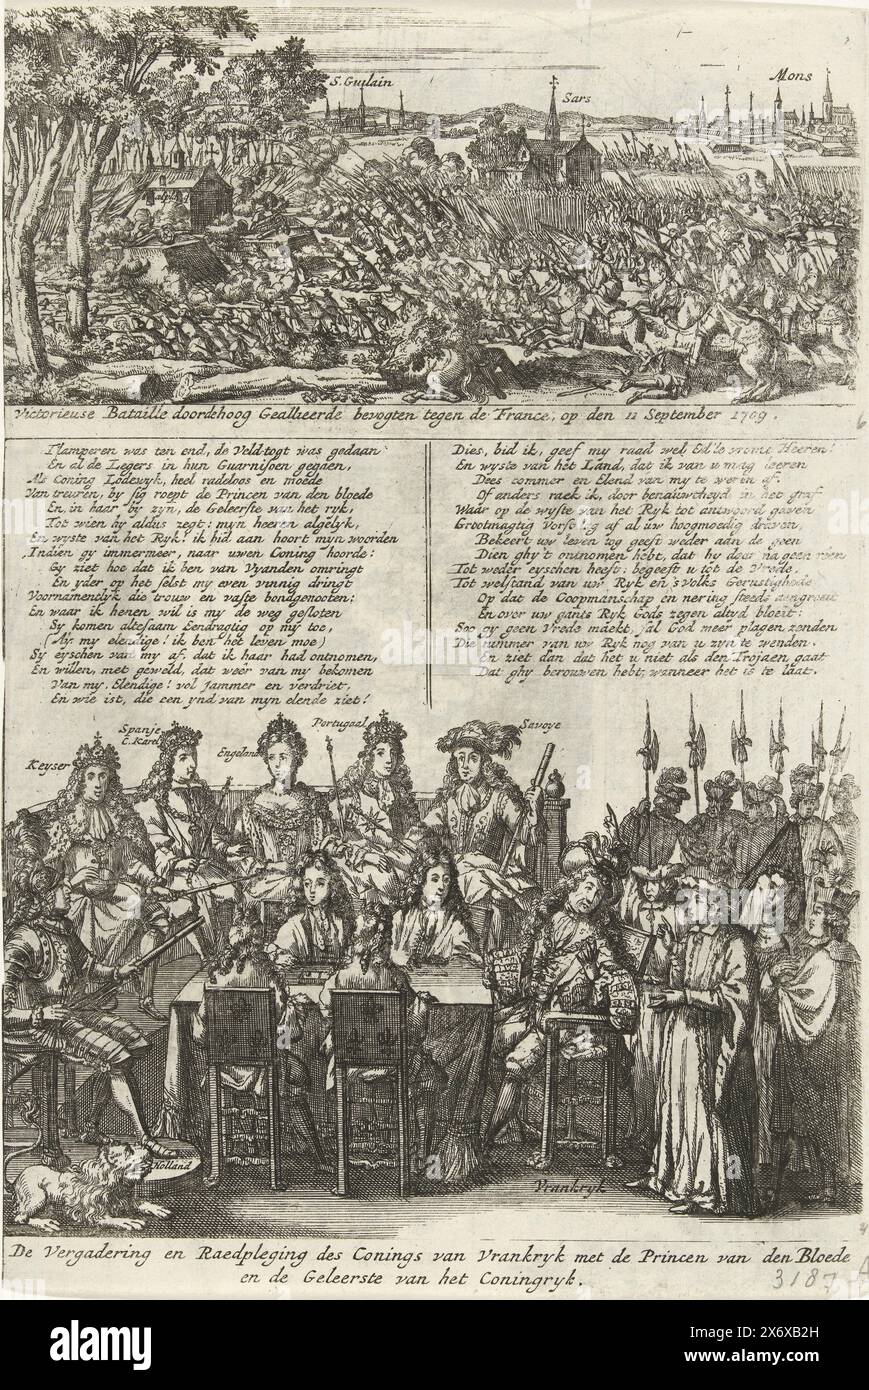 S. Guilain
Sars
Mons
Victorieuse Bataille doordehoog Gealheerde bevogten tegen de France, op den 11 September 1709.
Tlamperen was ten end, de Veld-togt was gedaan
En al de Legers in hun Guarnisoen gegaen,
Als Coning Lodewyk, heel radeloos en moede
Van treuren, by sig roept de Princen van den bloede
En, in haar by zyn, de Geleerste van het ryk,
Tot wien hy aldus zegt: myn heeren algelyk,
En wyste van het Ryk! ik bid aan hoort myn woorden
Indien gy immermeer, naar uwen Coning hoorde:
Gy ziet hoe dat ik ben van Vyanden omringt
En yder op het selst my even vinnig dringt
Voornamentlyk die trouw en vaste bondgenooten:
En waar ik henen wil is my de weg gesloten
Sy komen altesaam Eendragtig op my toe,
(Ay my elendige! ik ben het leven moe)
Sy eyschen van my af, dat ik haar had ontnomen,
En willen, met geweld, dat weêr van my bekomen
Van my, Elendige! vol Jammer en verdriet,
En wie ist, die een ynd van myn elende ziet!
Dies, bid ik, geef my raad wel Ed'le vrome Heeren!
En wyste van het Land, dat ik van u mag leeren
Dees commer en Elend van my te weren af.
Of anders raek ik, door benauwtheyd in het graf
Waar op de wyste van het Ryk tot antwoord gaven
Grootmagtig Vorst leg af al uw hoogmoedig draven,
Bekeert uw leven tog geeft weder aan de geen
Dien ghy't ontnomen hebt, dat hy daar na geen reen
Tot weder eyschen heeft: begeeft u tot de Vrede.
Tot welstand van uw Ryk en 's Volks Gerustighede
Op dat de Coopmanschap en nering steeds aengroeit
En over uw gants Ryk Gods zegen altyd bloeit:
Soo gy geen Vrede maekt, sal God meer plagen zenden
Die nimmer van uw Ryk nog van u zyn te wenden.
En ziet dan dat het u niet als den Trojaen gaat
Dat ghy berouwen hebt, wanneer het is te laat.
Keyser
Spanje
C. Karel
Engeland
Portugaal
Savoye
Holland
Vrankryk
De Vergadering en Raedpleging des Conings van Vrankryk met de Princen van den Bloede
en de Geleerste van het Coningryk.
3187
alamy
Image ID: 2X6XB2H
www.alamy.com